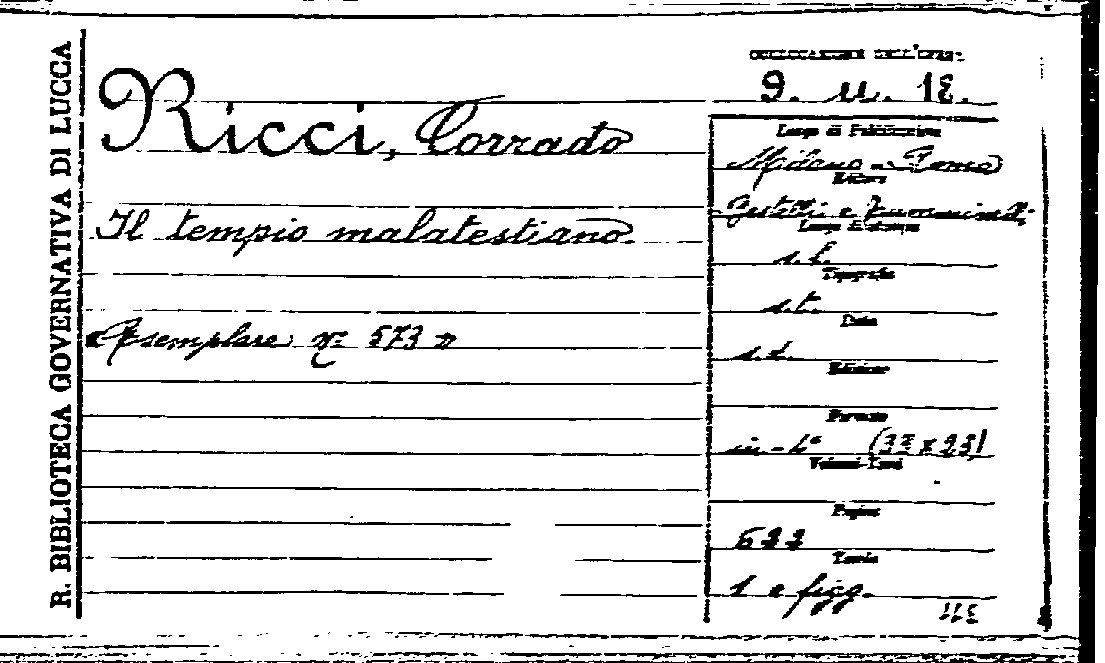 R. BIBLIOTECA GOVERNATIVA DI LUCCA
COLLOCAZIONE DELL'OPERA
9. u. 12.
Ricci, Corrado
Luogo di Pubblicazione
Milano - Roma
Editore
Bestetti e Tumminelli
Il tempio malatestiano.
Luogo di stampa
s.l.
Tipografia
s.t.
Data
«Esemplare nº 573»
s.d.
Edizione
Formato
in-4° (33x23)
Volumi-Tomi
Pagine
Tavole
1 e figg.